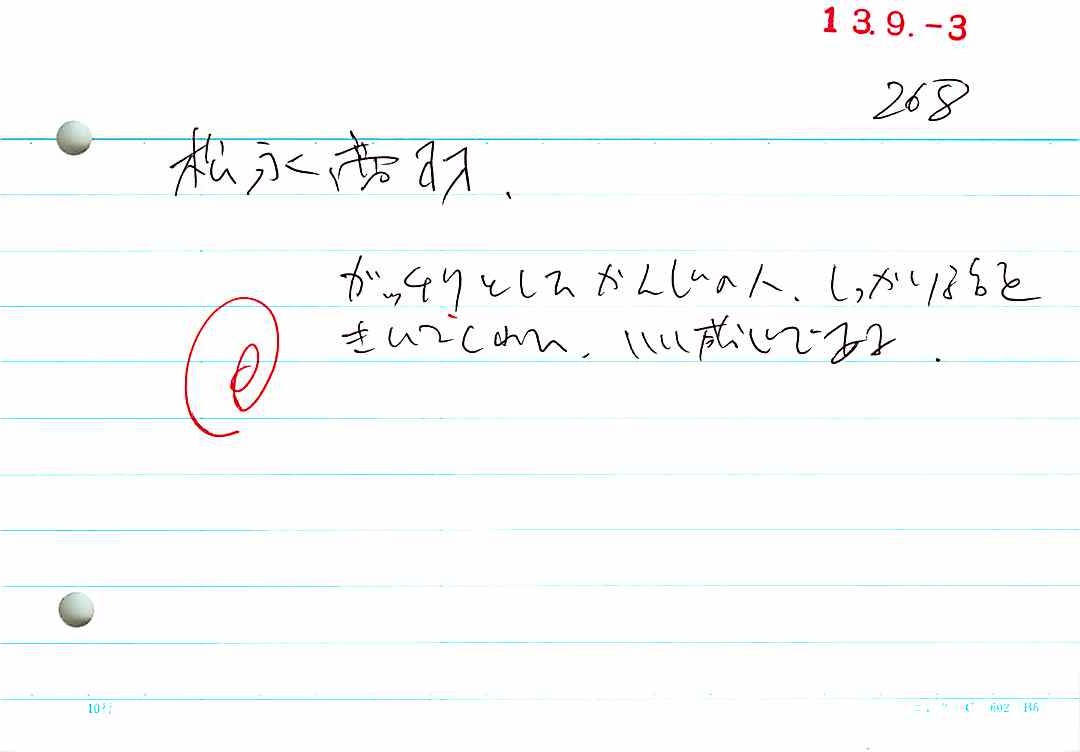 13.9.-3
268
松永
がっちりとしたかんじの人、しっかり話を
きいてくれた、いい感じである.
10行
602 B6